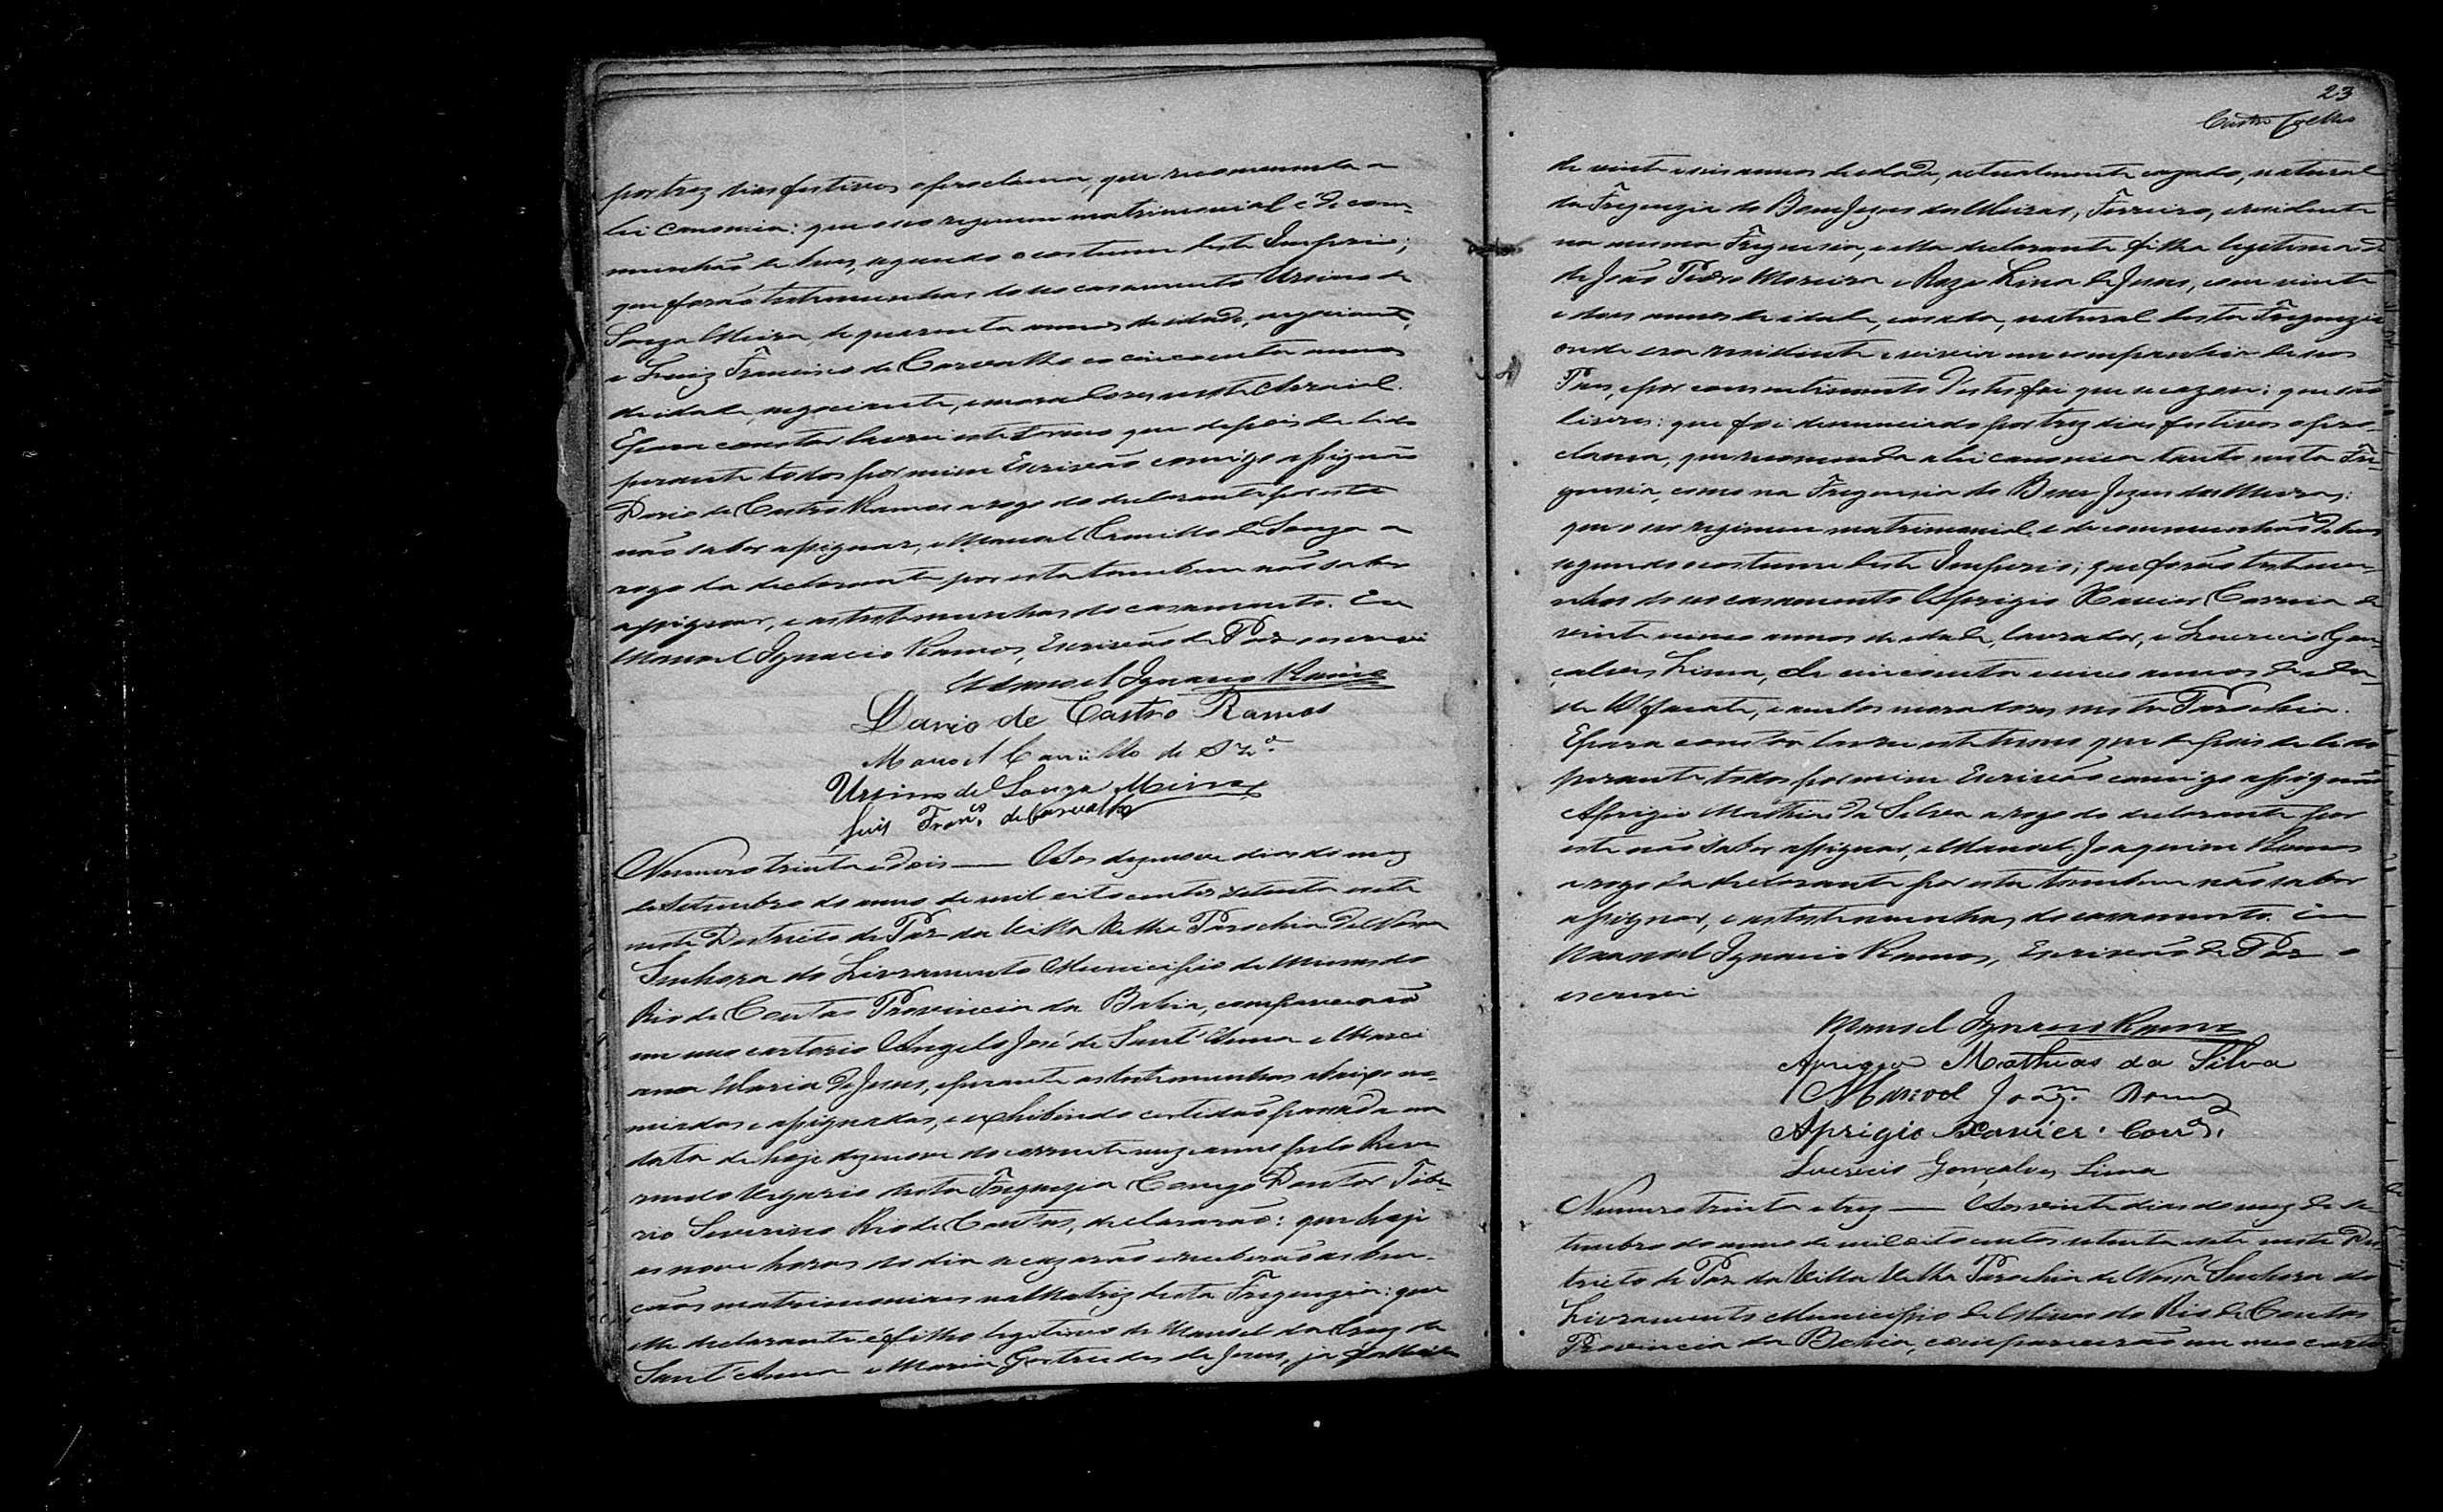 por trez dias festivos o proclama, que recommenda a
lei canonica: que o seo regimem matrimonial é de com-
munhão de bens, segundo o costume deste Imperio;
que forão testemunhas do seo casamento Ursino de
Souza Meira, de quarenta annos de idade, negociante,
e Luiz Francisco de Carvalho, cincoenta annos
de idade, negociante, e moradores neste Arraial.
E para constar lavrei este termo que depois de lido
perante todos por mim Escrivão comigo assignão
Dario de Castro Ramos a rogo do declarante por este
não saber assignar, e Manoel Camillo de Souza a
rogo da declarante por esta tambem não saber
assignar, e as testemunhas do casamento. Eu
Manoel Ignacio Ramos, Escrivão de Paz escrevi
Manoel Ignacio Ramos
Dario de Castro Ramos
Manoel Camillo de Sza.
Ursino de Souza Meira
Luis Franco. de Carvalho
Numero trinta e dois — Aos dezenove dias do mez
de Setembro do anno de mil oito centos setenta e sete
neste Districto de Paz da Villa Velha Parochia de Nossa
Senhora do Livramento Municipio de Minas do
Rio de Contas Provincia da Bahia, comparecerão
em meo cartorio Angelo José de Sant'Anna e Marci
ana Maria de Jesus, e perante as testemunhas abaixo no-
miadas e assignadas, e exhibindo certidão passada na
data de hoje dezenove do corrente mez e anno pelo Reve
rendo Vigario desta Freguezia Conego Doutor Tibe-
rio Severino Rio de Contas, declararão: que hoje
as nove horas do dia se cazarão e receberão as ben-
cãos matrimoniaes na Matriz desta Freguezia: que
elle declarante é filho legitimo de Manoel da Cruz de
Sant'Anna e Maria Gertrudes de Jesus, ja fallecida
23
Castro Coelho
de vinte e seis annos de idade, actualmente cazado, natural
da Freguezia do Bom Jezus dos Meiras, Ferreiro, e residente
na mesma Freguesia, e ella declarante filha legitima
de João Pedro Moreira e Roza Lina de Jesus, com vinte
e dois annos de idade, casada, natural desta Freguezia
onde era residente e vivia em companhia de seos
Pais, e por consentimento d'estes foi que se cazou: que são
livres: que foi denunciado por trez dias festivos o pro-
clama, que recommenda a lei canonica tanto nesta Fre-
guesia, como na Freguesia do Bom Jezus dos Meiras:
que o seo regimem matrimonial é de communhão de bens
segundo o costume deste Imperio; que forão testemu-
nhas do seo casamento Aprigio Xavier Correia de
vinte e cinco annos de idade, lavrador, e Lucrecio Gon-
çalves Lima, de cincoenta e cinco annos de ida-
de Alfaiate, e ambos moradores nesta Parochia.
E para constar lavrei este termo que depois de lido
perante todos por mim Escrivão comigo assignão
Aprigio Mathias da Silva a rogo do declarante por
este não saber assignar, e Manoel Joaquim Ramos
a rogo da declarante por esta tambem não saber
assignar, e as testemunhas do casamento. Eu
Manoel Ignacio Ramos, Escrivão de Paz o
escrevi
Manoel Ignacio Ramos
Aprigio Mathias da Silva
Manoel Joaqm. Ramos
Aprigio Xavier Corra.
Lucrecio Gonçalves Lima
Numero trinta e trez — Aos vinte dias do mez de Se-
tembro do anno de mil oito centos setenta e sete neste Dis
tricto de Paz da Villa Velha Parochia de Nossa Senhora do
Livramento Municipio de Minas do Rio de Contas
Provincia da Bahia, comparecerão em meo carto